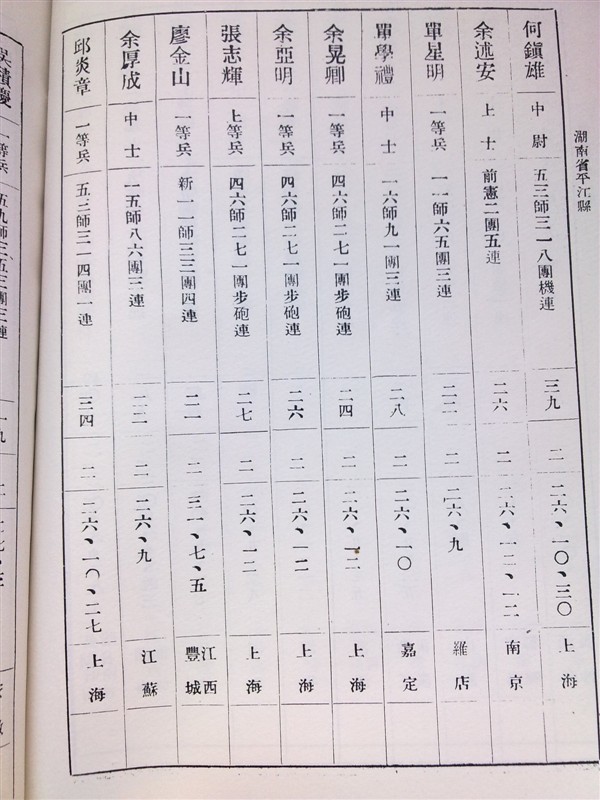 湖南省平江縣
何鎭雄 中尉 五三師三一八團機連 三九 二 二六、一〇、三〇 上海
余述安 上士 前憲二團五連 二六 二 二六、一二、一二 南京
單星明 一等兵 一一師六五團三連 二二 二 二六、九 羅店
單學禮 中士 一六師九一團三連 二八 二 二六、一〇 嘉定
余晃卿 一等兵 四六師二七一團步砲連 二四 二 二六、一二 上海
余亞明 一等兵 四六師二七一團步砲連 二六 二 二六、一二 上海
張志輝 上等兵 四六師二七一團步砲連 二七 二 二六、一二 上海
廖金山 一等兵 新一一師三三團四連 二一 二 三一、七、五 江西豐城
余厚成 中士 一五師八六團三連 二二 二 二六、九 江蘇
邱炎章 一等兵 五三師三一四團一連 三四 二 二六、一〇、二七 上海
一等兵 五九師三五三團三連 一九